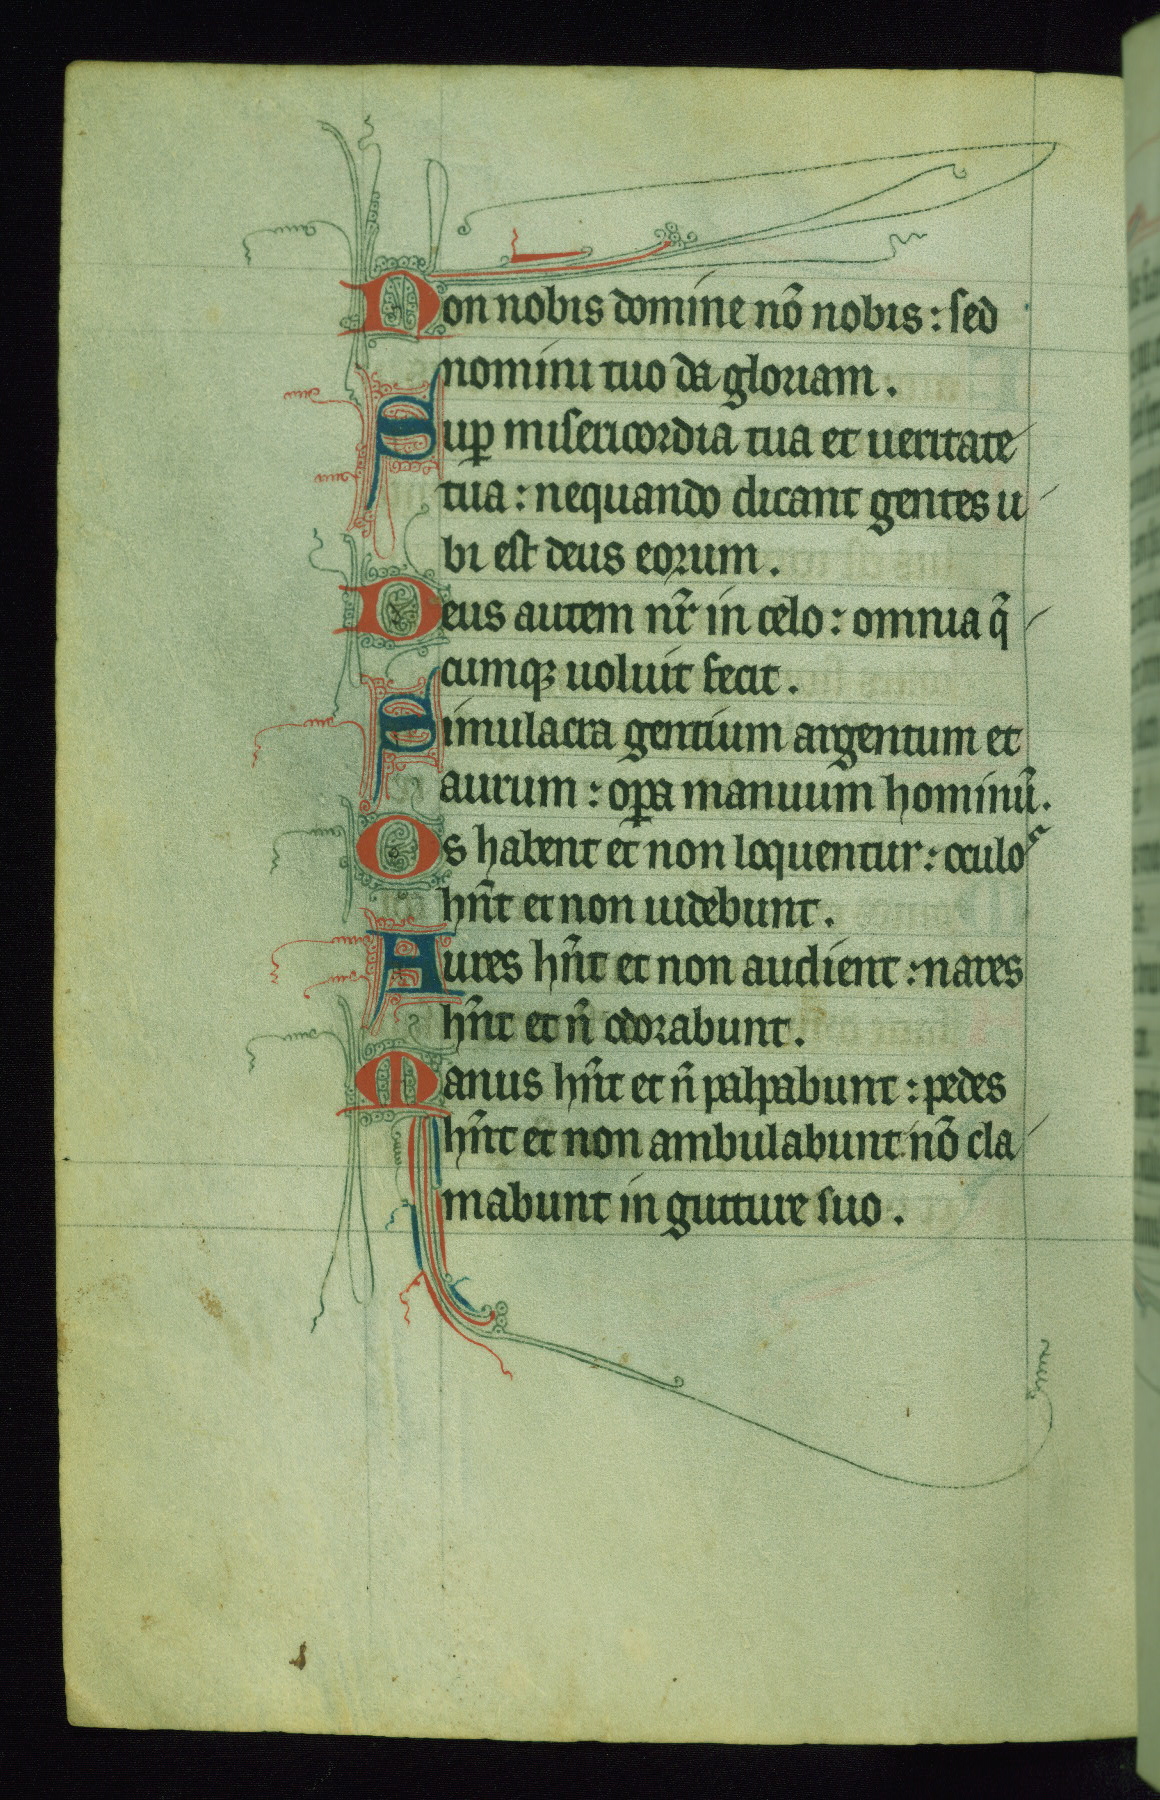 Non nobis domine nõ nobis : sed
nomini tuo da gloriam .
Suꝑ misericordia tua et ueritate
tua : nequando dicant gentes u
bi est deus eorum .
Deus autem nr̃ in celo : omnia q̃
cumqꝫ uoluit fecit .
Simulacra gentium argentum et
aurum : oꝑa manuum hominũ .
Os habent et non loquentur : oculos
hñt et non uidebunt .
Aures hñt et non audient : nares
hñt et ñ odorabunt .
Manus hñt et ñ palpabunt : pedes
hñt et non ambulabunt nõ cla
mabunt in gutture suo .